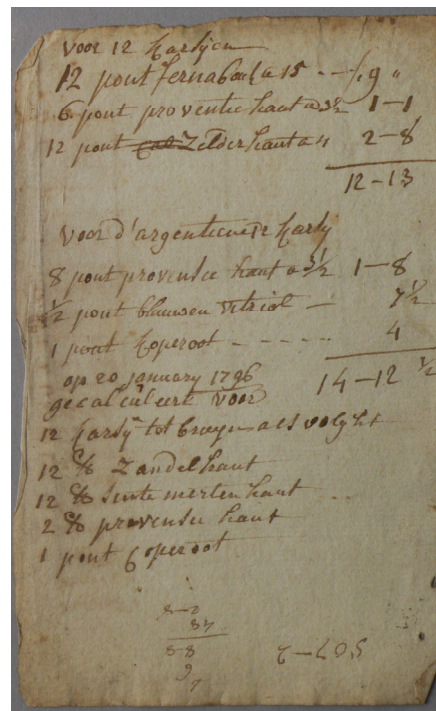 voor 12 karsijen
12 pont fernabouk a 15 - - f 9 "
6 pont provensie haut a 3½ 1-1
12 pont Zelder haut a 4 2-8
12-13
voor d'argentieneie karsij
8 pont provensie haut a 3½ 1-8
½ pont blauwen vitriol - 7½
1 pont Coperoot - - - - - 4
op 20 january 1796 14-12 ½
gecalculeert voor
12 karsij tot bruyn als volght
12 lb Zandel haut
12 lb sinte merten haut
2 lb provensie haut
1 pont Coperoot